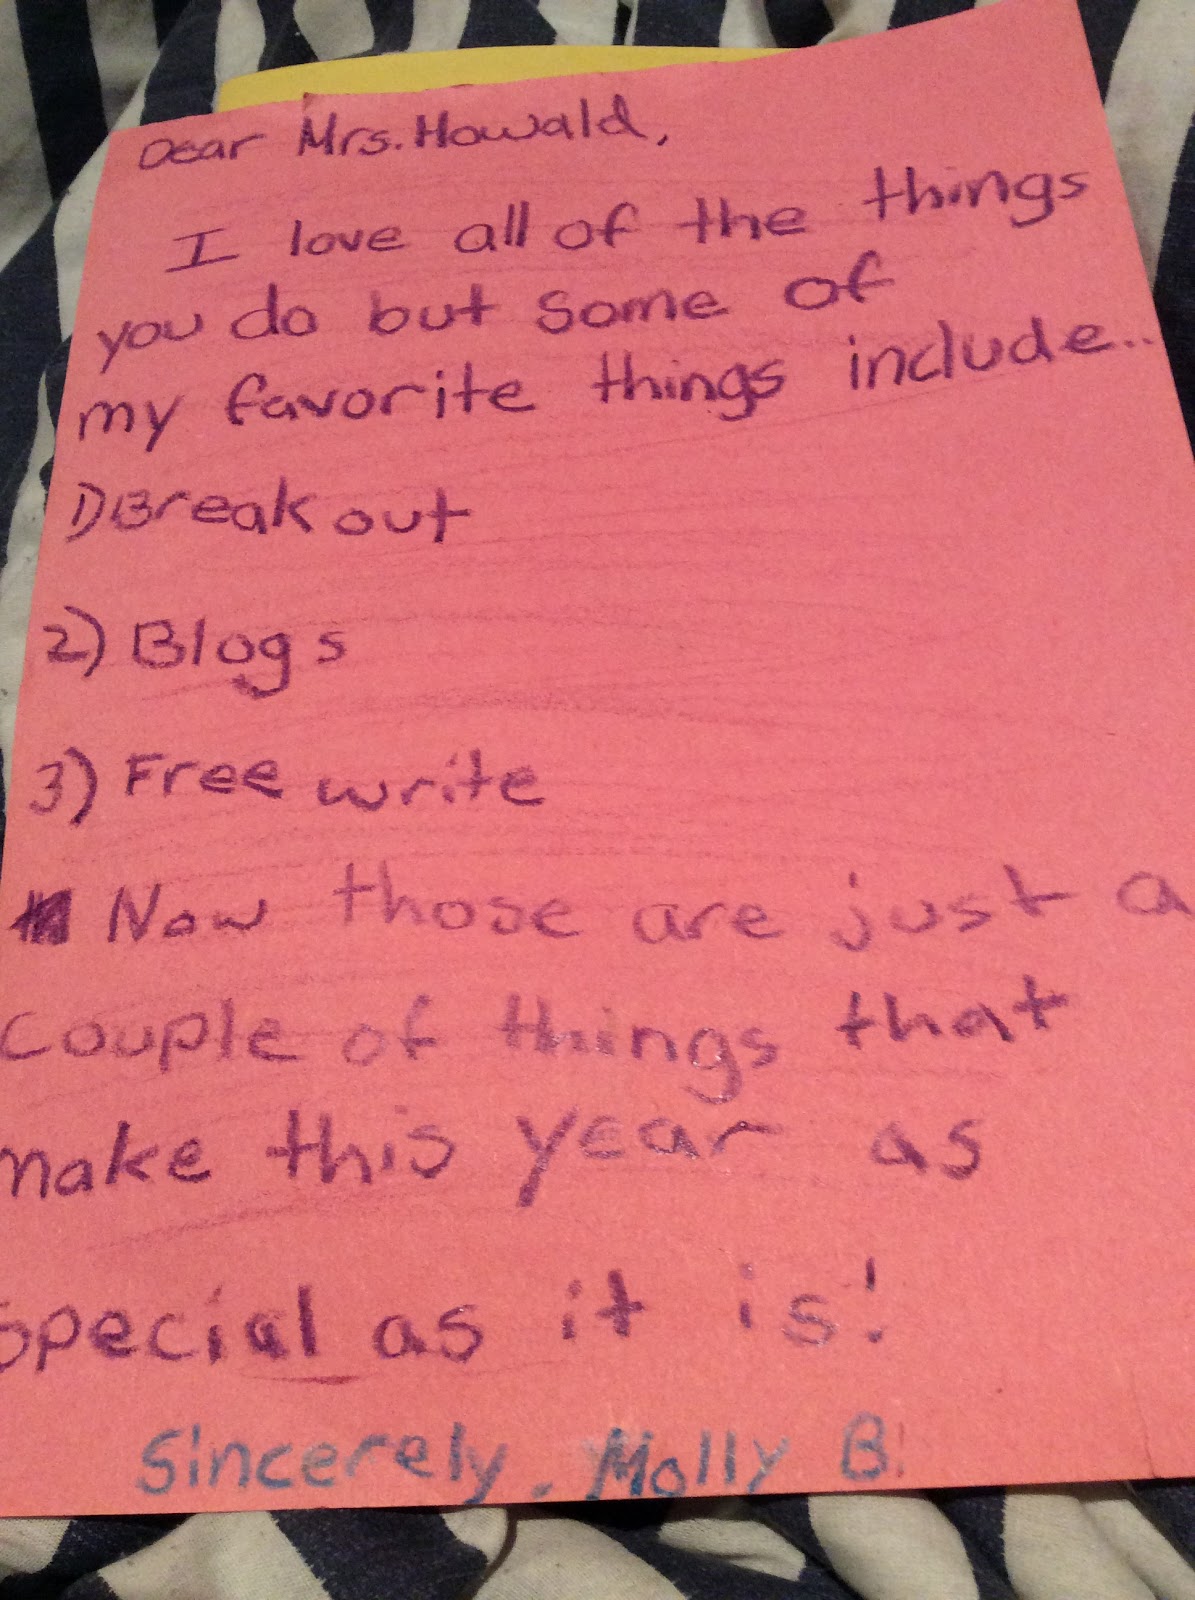 Dear Mrs. Howald,
I love all of the things
you do but some of
my favorite things include...
1) Break out
2) Blogs
3) Free write
Now those are just a
couple of things that
make this year as
special as it is!
Sincerely, Molly B.